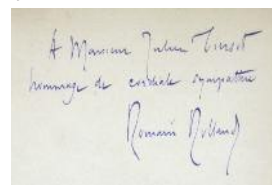 À Monsieur Julien Tiersot
hommage de cordiale sympathie
Romain Rolland